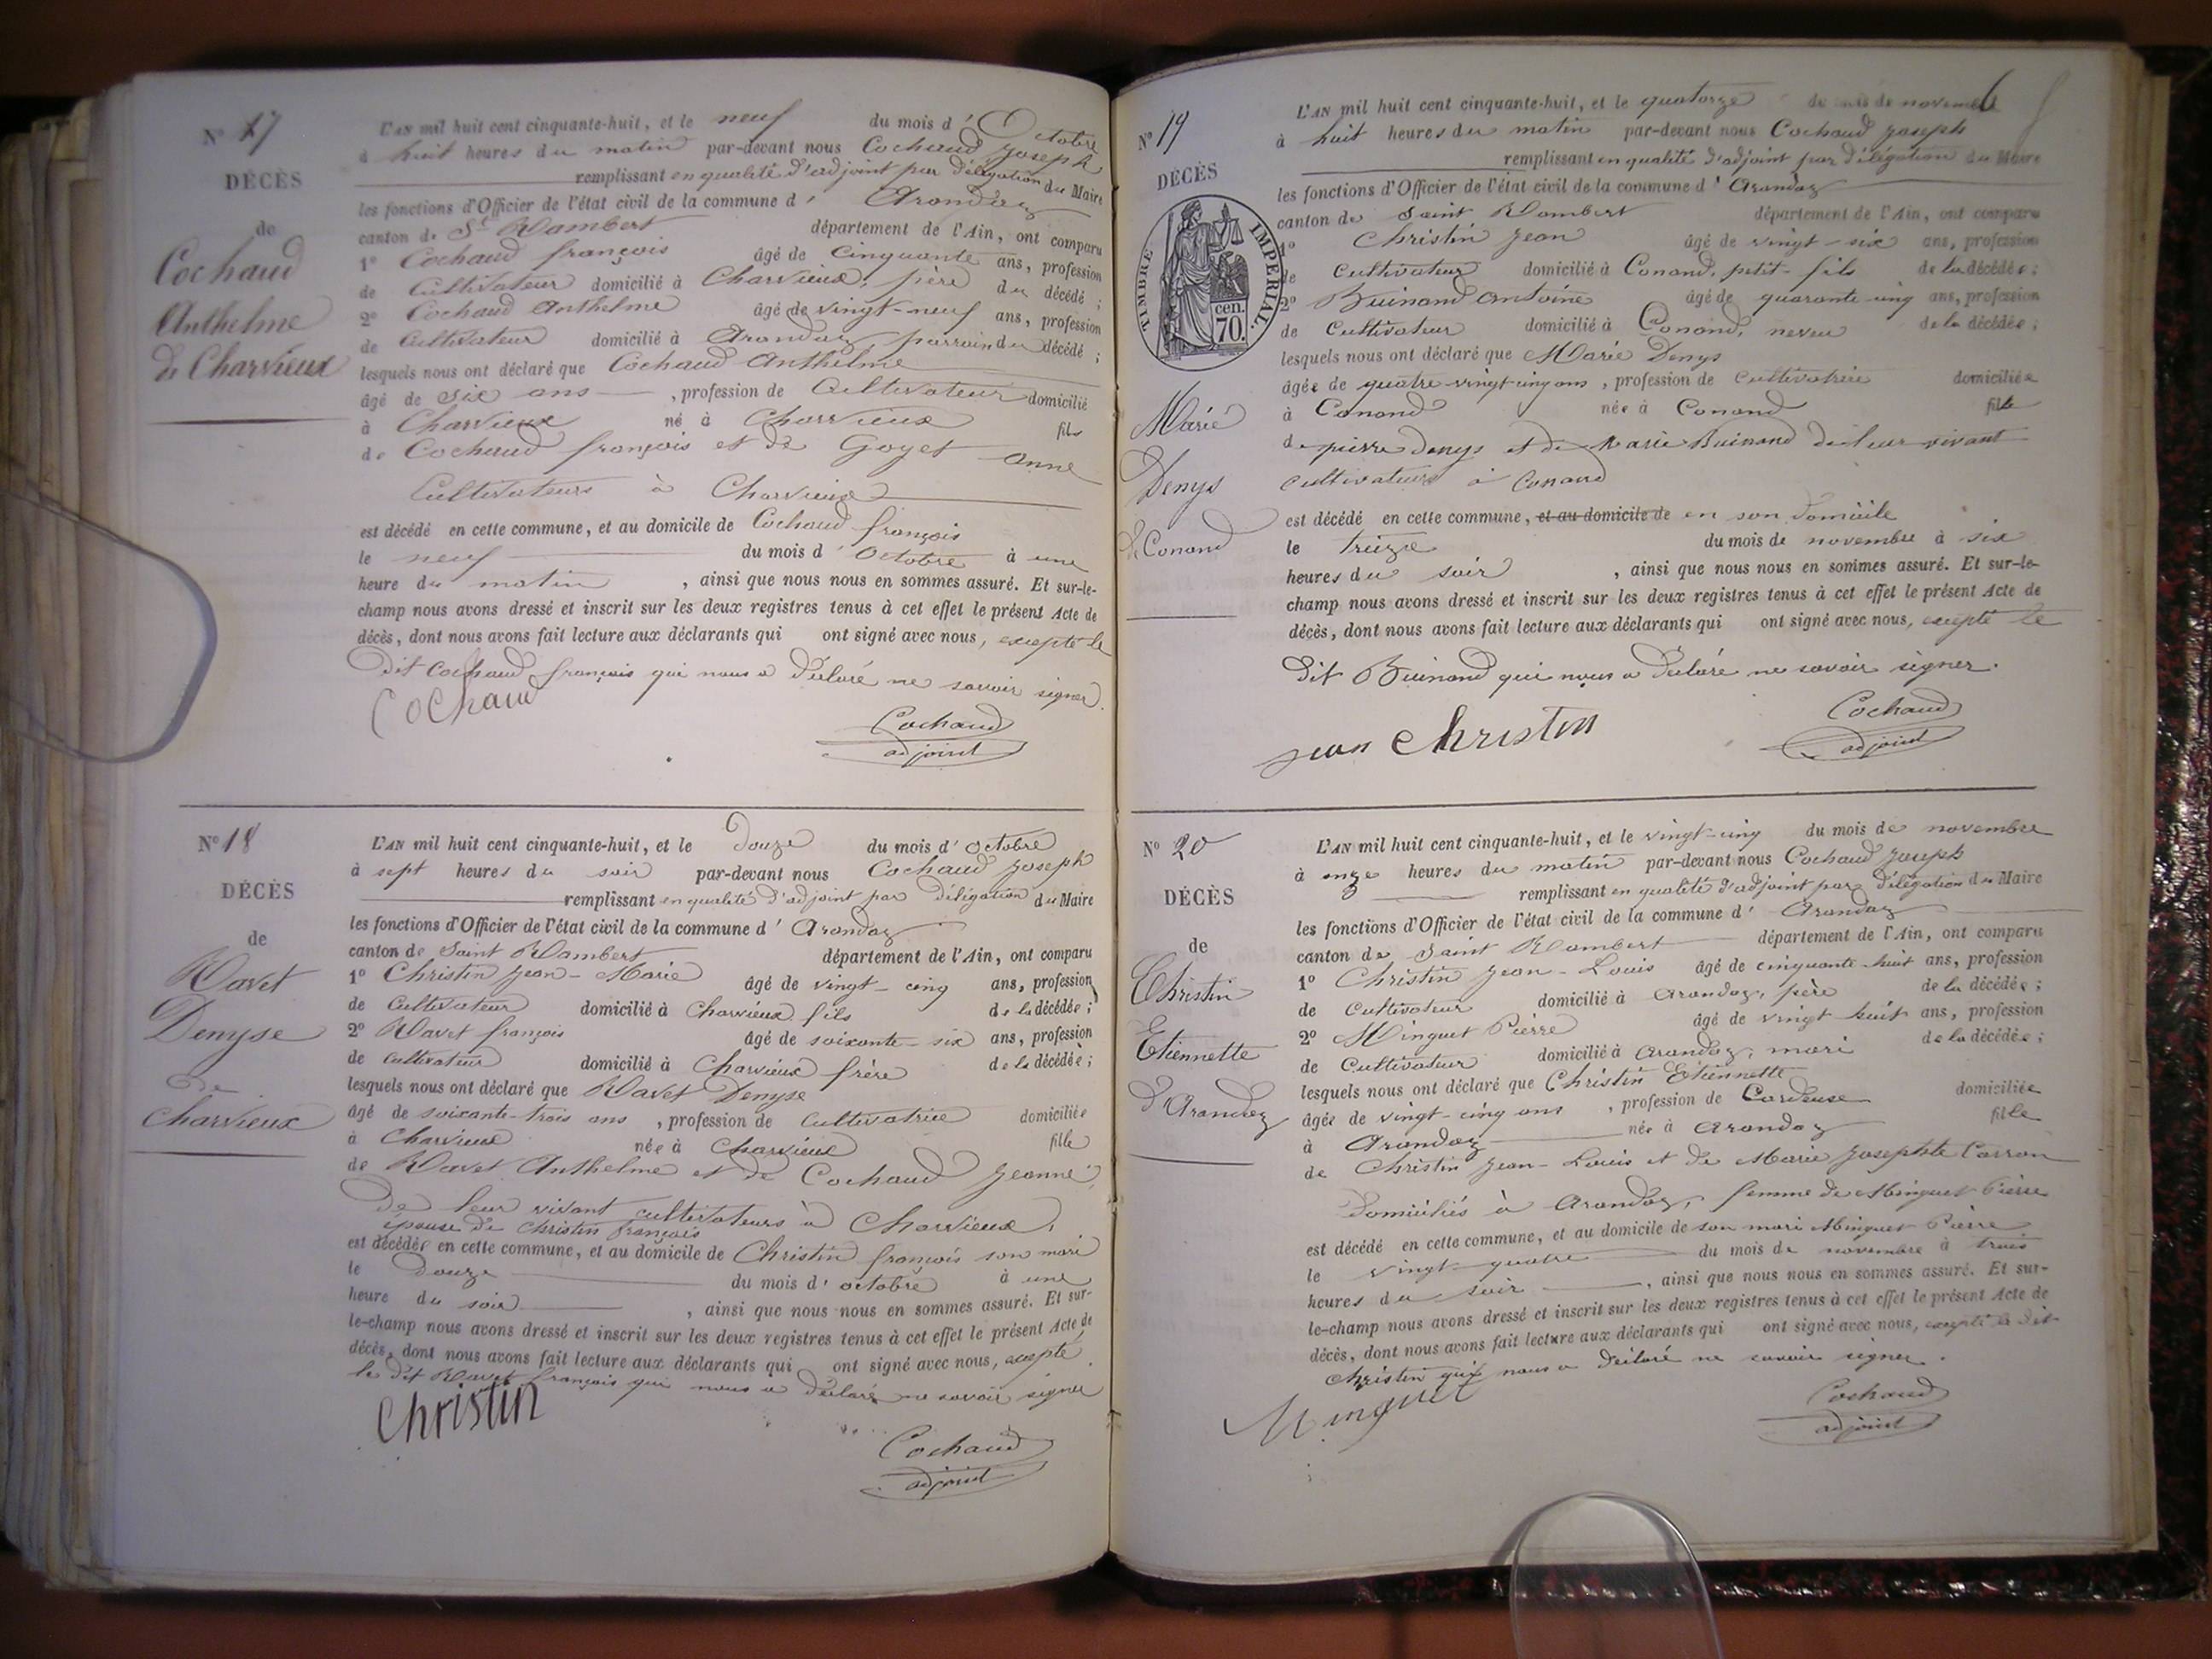 N° 17
DÉCÈS
de
Cochaud
Anthelme
de Charvieux
L'AN mil huit cent cinquante-huit, et le neuf du mois d'Octobre
à huit heures du matin par-devant nous Cochaud Joseph
remplissant en qualité d'adjoint par délégation du Maire
les fonctions d'Officier de l'état civil de la commune d'Arandaz
canton de St Rambert département de l'Ain, ont comparu
1° Cochaud françois âgé de cinquante ans, profession
de Cultivateur domicilié à Charvieux, père du décédé ;
2° Cochaud Anthelme âgé de vingt-neuf ans, profession
de Cultivateur domicilié à Arandaz, parrain du décédé ;
lesquels nous ont déclaré que Cochaud Anthelme
âgé de six ans, profession de Cultivateur domicilié
à Charvieux né à Charvieux fils
de Cochaud françois et de Goyet Anne
Cultivateurs à Charvieux
est décédé en cette commune, et au domicile de Cochaud françois
le neuf du mois d'Octobre à une
heure du matin, ainsi que nous nous en sommes assuré. Et sur-le-
champ nous avons dressé et inscrit sur les deux registres tenus à cet effet le présent Acte de
décès, dont nous avons fait lecture aux déclarants qui ont signé avec nous, excepté le
dit Cochaud françois qui nous a déclaré ne savoir signer.
Cochaud
Cochaud
adjoint
N° 18
DÉCÈS
de
Ravet
Denyse
de
Charvieux
L'AN mil huit cent cinquante-huit, et le douze du mois d'octobre
à sept heures du soir par-devant nous Cochaud Joseph
remplissant en qualité d'adjoint par délégation du Maire
les fonctions d'Officier de l'état civil de la commune d'Arandaz
canton de Saint Rambert département de l'Ain, ont comparu
1° Christin Jean-Marie âgé de vingt-cinq ans, profession
de Cultivateur domicilié à Charvieux fils de la décédée ;
2° Ravet françois âgé de soixante-six ans, profession
de cultivateur domicilié à Charvieux frère de la décédée ;
lesquels nous ont déclaré que Ravet Denyse
âgé de soixante-trois ans, profession de Cultivatrice domiciliée
à Charvieux née à Charvieux fille
de Ravet Anthelme et de Cochaud Jeanne,
de leur vivant cultivateurs à Charvieux,
épouse de Christin français
est décédée en cette commune, et au domicile de Christin françois son mari
le douze du mois d'octobre à une
heure du soir, ainsi que nous nous en sommes assuré. Et sur-
le-champ nous avons dressé et inscrit sur les deux registres tenus à cet effet le présent Acte de
décès, dont nous avons fait lecture aux déclarants qui ont signé avec nous, excepté
le dit Ravet français qui nous a déclaré ne savoir signer
Christin
Cochaud
adjoint
6
N° 19
DÉCÈS
TIMBRE IMPÉRIAL.
cen.
70.
Marie
Denys
de Conand
L'AN mil huit cent cinquante-huit, et le quatorze du mois de novembre
à huit heures du matin par-devant nous Cochaud Joseph
remplissant en qualité d'adjoint par délégation du Maire
les fonctions d'Officier de l'état civil de la commune d'Arandaz
canton de Saint Rambert département de l'Ain, ont comparu
1° Christin Jean âgé de vingt-six ans, profession
de Cultivateur domicilié à Conand, petit-fils de la décédée ;
2° Buinand Antoine âgé de quarante-cinq ans, profession
de Cultivateur domicilié à Conand, neveu de la décédée ;
lesquels nous ont déclaré que Marie Denys
âgée de quatre-vingt-cinq ans, profession de Cultivatrice domiciliée
à Conand née à Conand fille
de pierre Denys et de Marie Buinand de leur vivant
cultivateurs à Conand
est décédé en cette commune, et au domicile de en son domicile
le treize du mois de novembre à six
heures du soir, ainsi que nous nous en sommes assuré. Et sur-le-
champ nous avons dressé et inscrit sur les deux registres tenus à cet effet le présent Acte de
décès, dont nous avons fait lecture aux déclarants qui ont signé avec nous, excepté le
dit Buinand qui nous a déclaré ne savoir signer.
jean christin
Cochaud
adjoint
N° 20
DÉCÈS
de
Christin
Etiennette
d'Arandaz
L'AN mil huit cent cinquante-huit, et le vingt-cinq du mois de novembre
à onze heures du matin par-devant nous Cochaud Joseph
remplissant en qualité d'adjoint par délégation du Maire
les fonctions d'Officier de l'état civil de la commune d'Arandaz
canton de Saint Rambert département de l'Ain, ont comparu
1° Christin Jean-Louis âgé de cinquante-huit ans, profession
de Cultivateur domicilié à Arandaz, père de la décédée ;
2° Minguet Pierre âgé de vingt huit ans, profession
de Cultivateur domicilié à Arandaz, mari de la décédée ;
lesquels nous ont déclaré que Christin Etiennette
âgée de vingt-cinq ans, profession de Cardeuse domiciliée
à Arandaz née à Arandaz fille
de Christin Jean-Louis et de Marie Josephte Carron
domiciliés à Arandaz, femme de Minguet Pierre
est décédé en cette commune, et au domicile de son mari Minguet Pierre
le vingt-quatre du mois de novembre à trois
heures du soir, ainsi que nous nous en sommes assuré. Et sur-
le-champ nous avons dressé et inscrit sur les deux registres tenus à cet effet le présent Acte de
décès, dont nous avons fait lecture aux déclarants qui ont signé avec nous, excepté le dit
Christin qui nous a déclaré ne savoir signer.
Minguet
Cochaud
adjoint